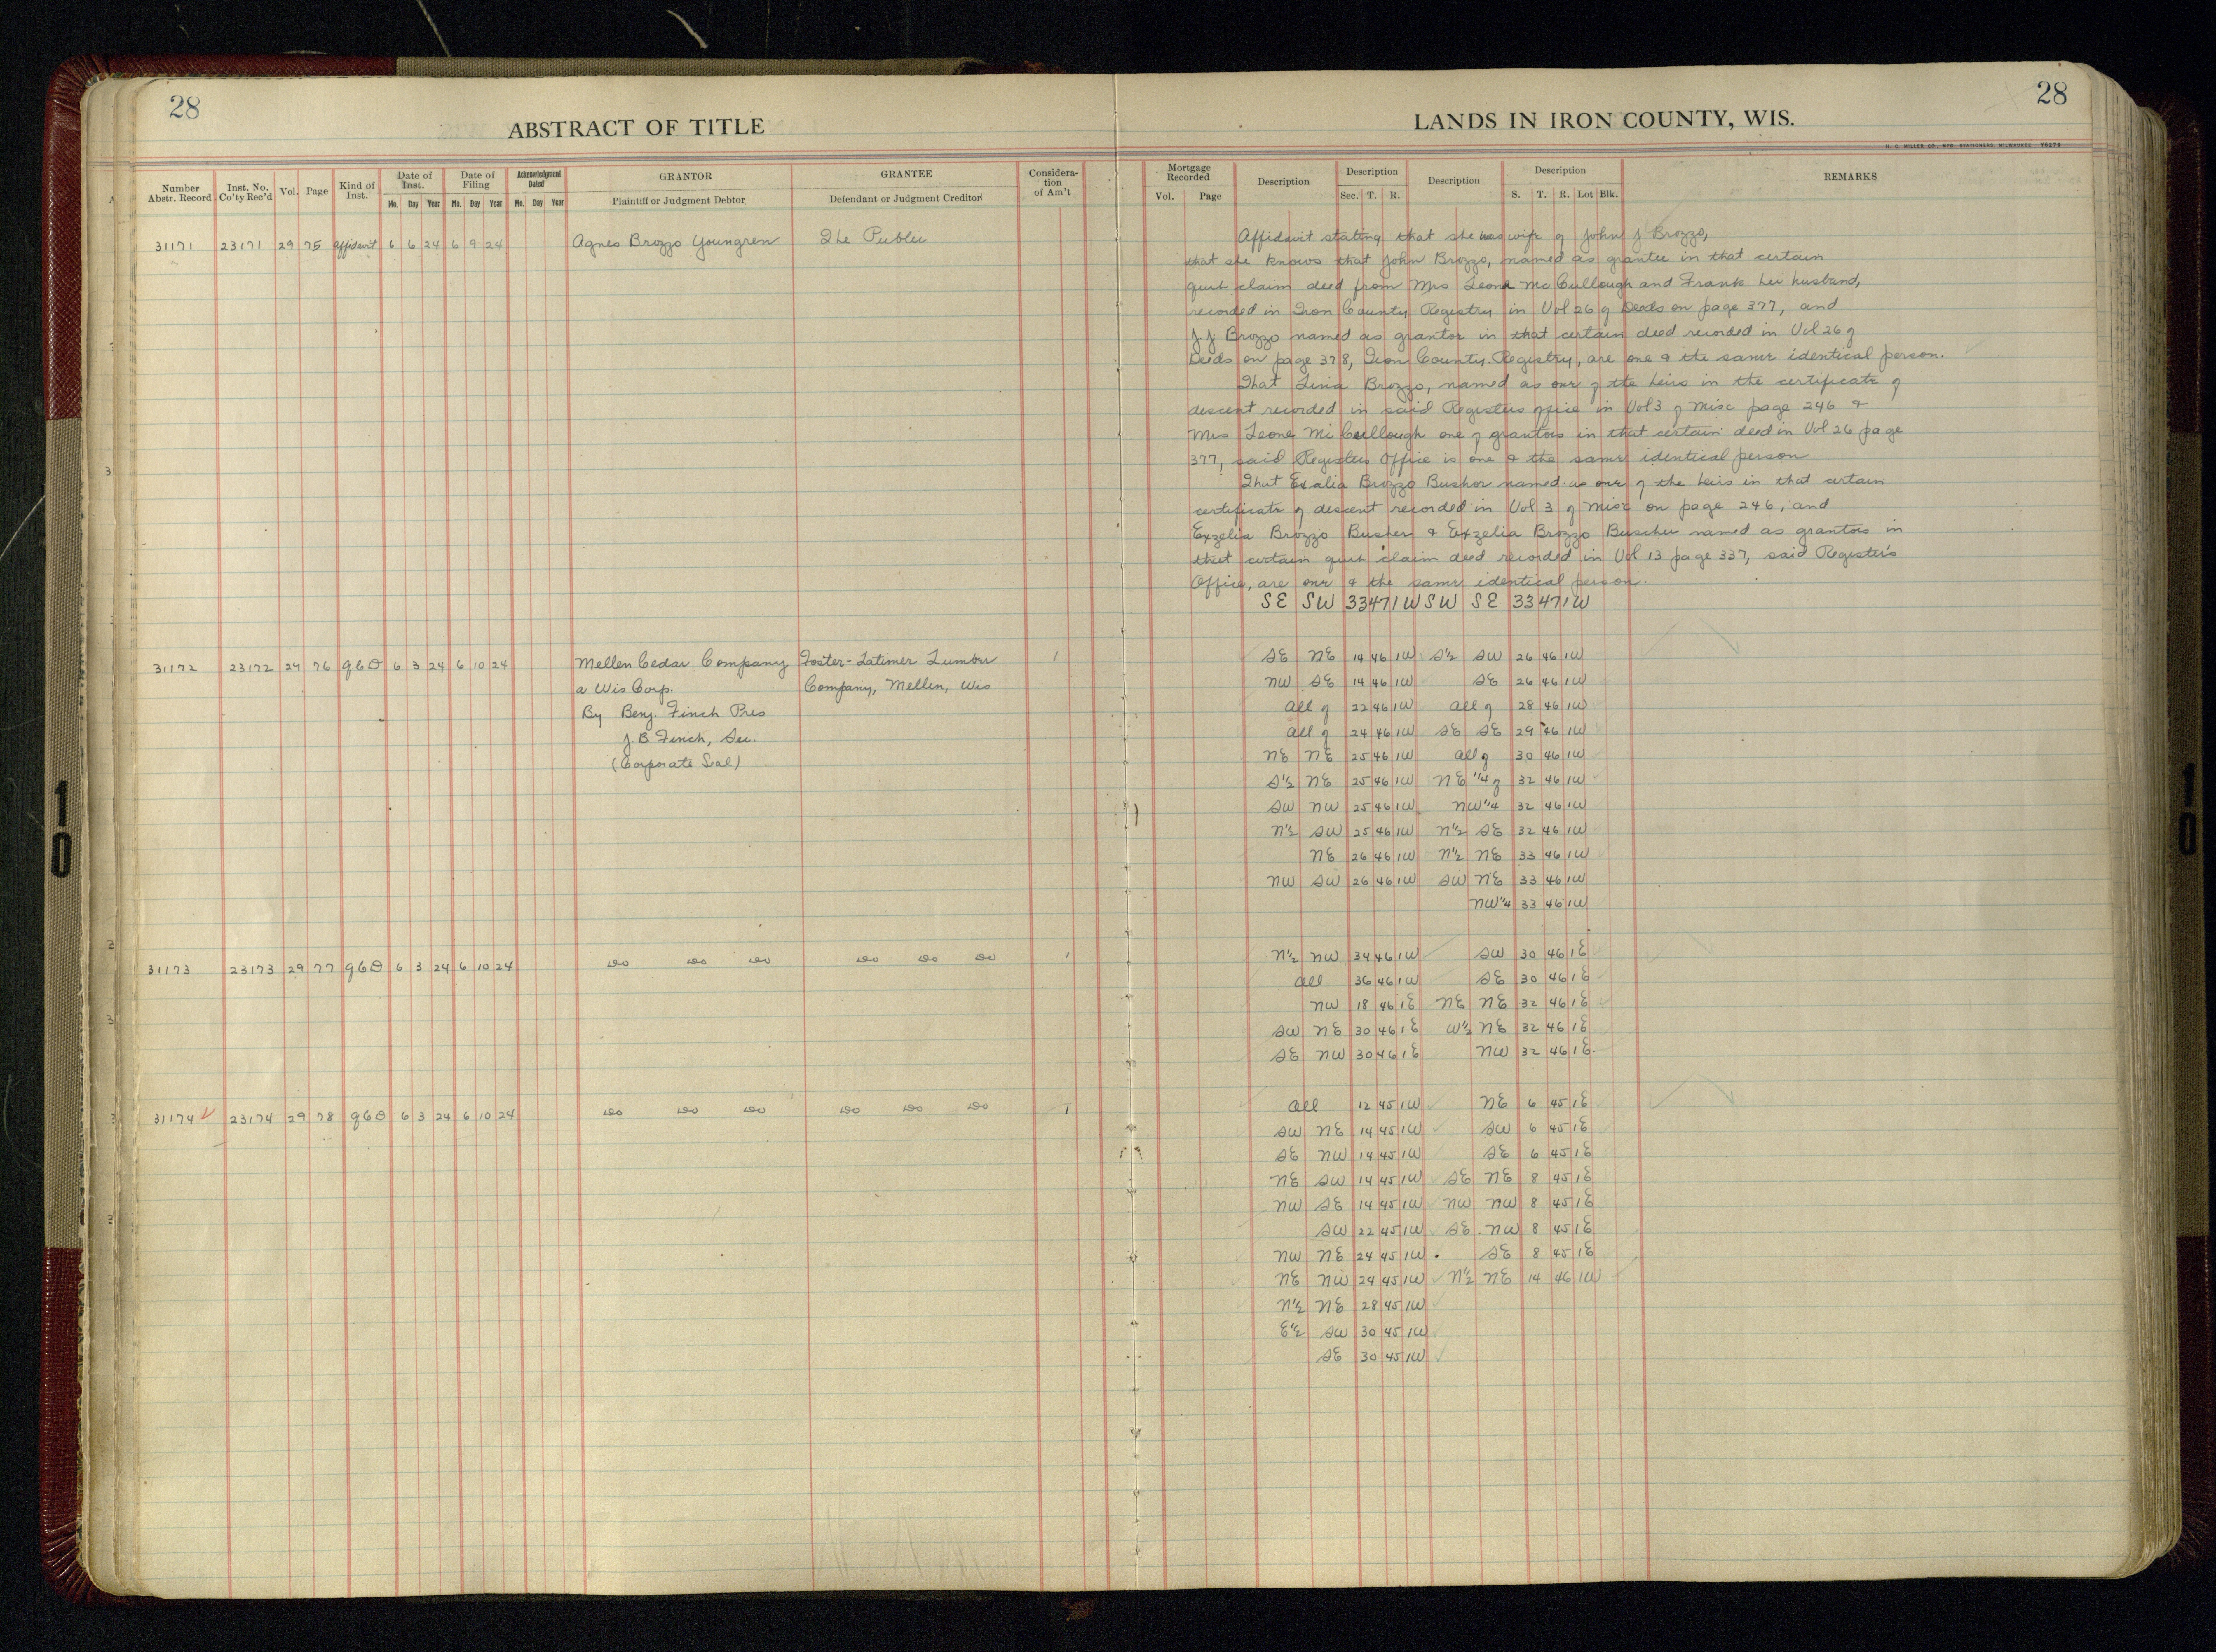 28
ABSTRACT OF TITLE
Number Abstr. Record | Inst. No. Co'ty Rec'd | Vol. | Page | Kind of Inst. | Date of Inst. Mo. Day Year | Date of Filing Mo. Day Year | Acknowledgment Dated Mo. Day Year | GRANTOR Plaintiff or Judgment Debtor | GRANTEE Defendant or Judgment Creditor | Consideration of Am't
31171 23171 29 75 Affidavit 6 6 24 6 9 24 Agnes Brozzo Youngren The Public
31172 23172 29 76 QCD 6 3 24 6 10 24 Mellen Cedar Company Foster-Latimer Lumber 1
a Wis Corp. Company, Mellen, Wis
By Benj. Finch Pres
J. B Finch, Sec.
(Corporate Seal)
31173 23173 29 77 QCD 6 3 24 6 10 24 do do do do do do 1
31174 23174 29 78 QCD 6 3 24 6 10 24 do do do do do do 1
28
LANDS IN IRON COUNTY, WIS.
H. C. MILLER CO., MFG. STATIONERS, MILWAUKEE
Mortgage Recorded Vol. Page | Description | Description Sec. T. R. | Description | Description S. T. R. Lot Blk. | REMARKS
Affidavit stating that she was wife of John J Brozzo,
that she knows that John Brozzo, named as grantee in that certain
quit claim deed from Mrs Leona McCullough and Frank her husband,
recorded in Iron County Registry in Vol 26 of Deeds on page 377, and
J. J. Brozzo named as grantor in that certain deed recorded in Vol 26 of
Deeds on page 378, Iron County Registry, are one & the same identical person.
That Lina Brozzo, named as one of the heirs in the certificate of
descent recorded in said Registers office in Vol 3 of Misc page 246 &
Mrs Leone McCullough one of grantors in that certain deed in Vol 26 page
377, said Registers Office is one & the same identical person
That Exalia Brozzo Bushor named as one of the heirs in that certain
certificate of descent recorded in Vol 3 of Misc on page 246, and
Exzelia Brozzo Busher & Exzelia Brozzo Buscher named as grantors in
that certain quit claim deed recorded in Vol 13 page 337, said Register's
Office, are one & the same identical person.
SE SW 33 47 1W SW SE 33 47 1W
SE NE 14 46 1W S½ SW 26 46 1W
NW SE 14 46 1W SE 26 46 1W
All of 22 46 1W All of 28 46 1W
All of 24 46 1W SE SE 29 46 1W
NE NE 25 46 1W All of 30 46 1W
S½ NE 25 46 1W NE ¼ of 32 46 1W
SW NW 25 46 1W NW ¼ 32 46 1W
N½ SW 25 46 1W N½ SE 32 46 1W
NE 26 46 1W N½ NE 33 46 1W
NW SW 26 46 1W SW NE 33 46 1W
NW ¼ 33 46 1W
N½ NW 34 46 1W SW 30 46 1E
All 36 46 1W SE 30 46 1E
NW 18 46 1E NE NE 32 46 1E
SW NE 30 46 1E W½ NE 32 46 1E
SE NW 30 46 1E NW 32 46 1E
All 12 45 1W NE 6 45 1E
SW NE 14 45 1W SW 6 45 1E
SE NW 14 45 1W SE 6 45 1E
NE SW 14 45 1W SE NE 8 45 1E
NW SE 14 45 1W NW NW 8 45 1E
SW 22 45 1W SE NW 8 45 1E
NW NE 24 45 1W SE 8 45 1E
NE NW 24 45 1W N½ NE 14 46 1W
N½ NE 28 45 1W
E½ SW 30 45 1W
SE 30 45 1W
10
10